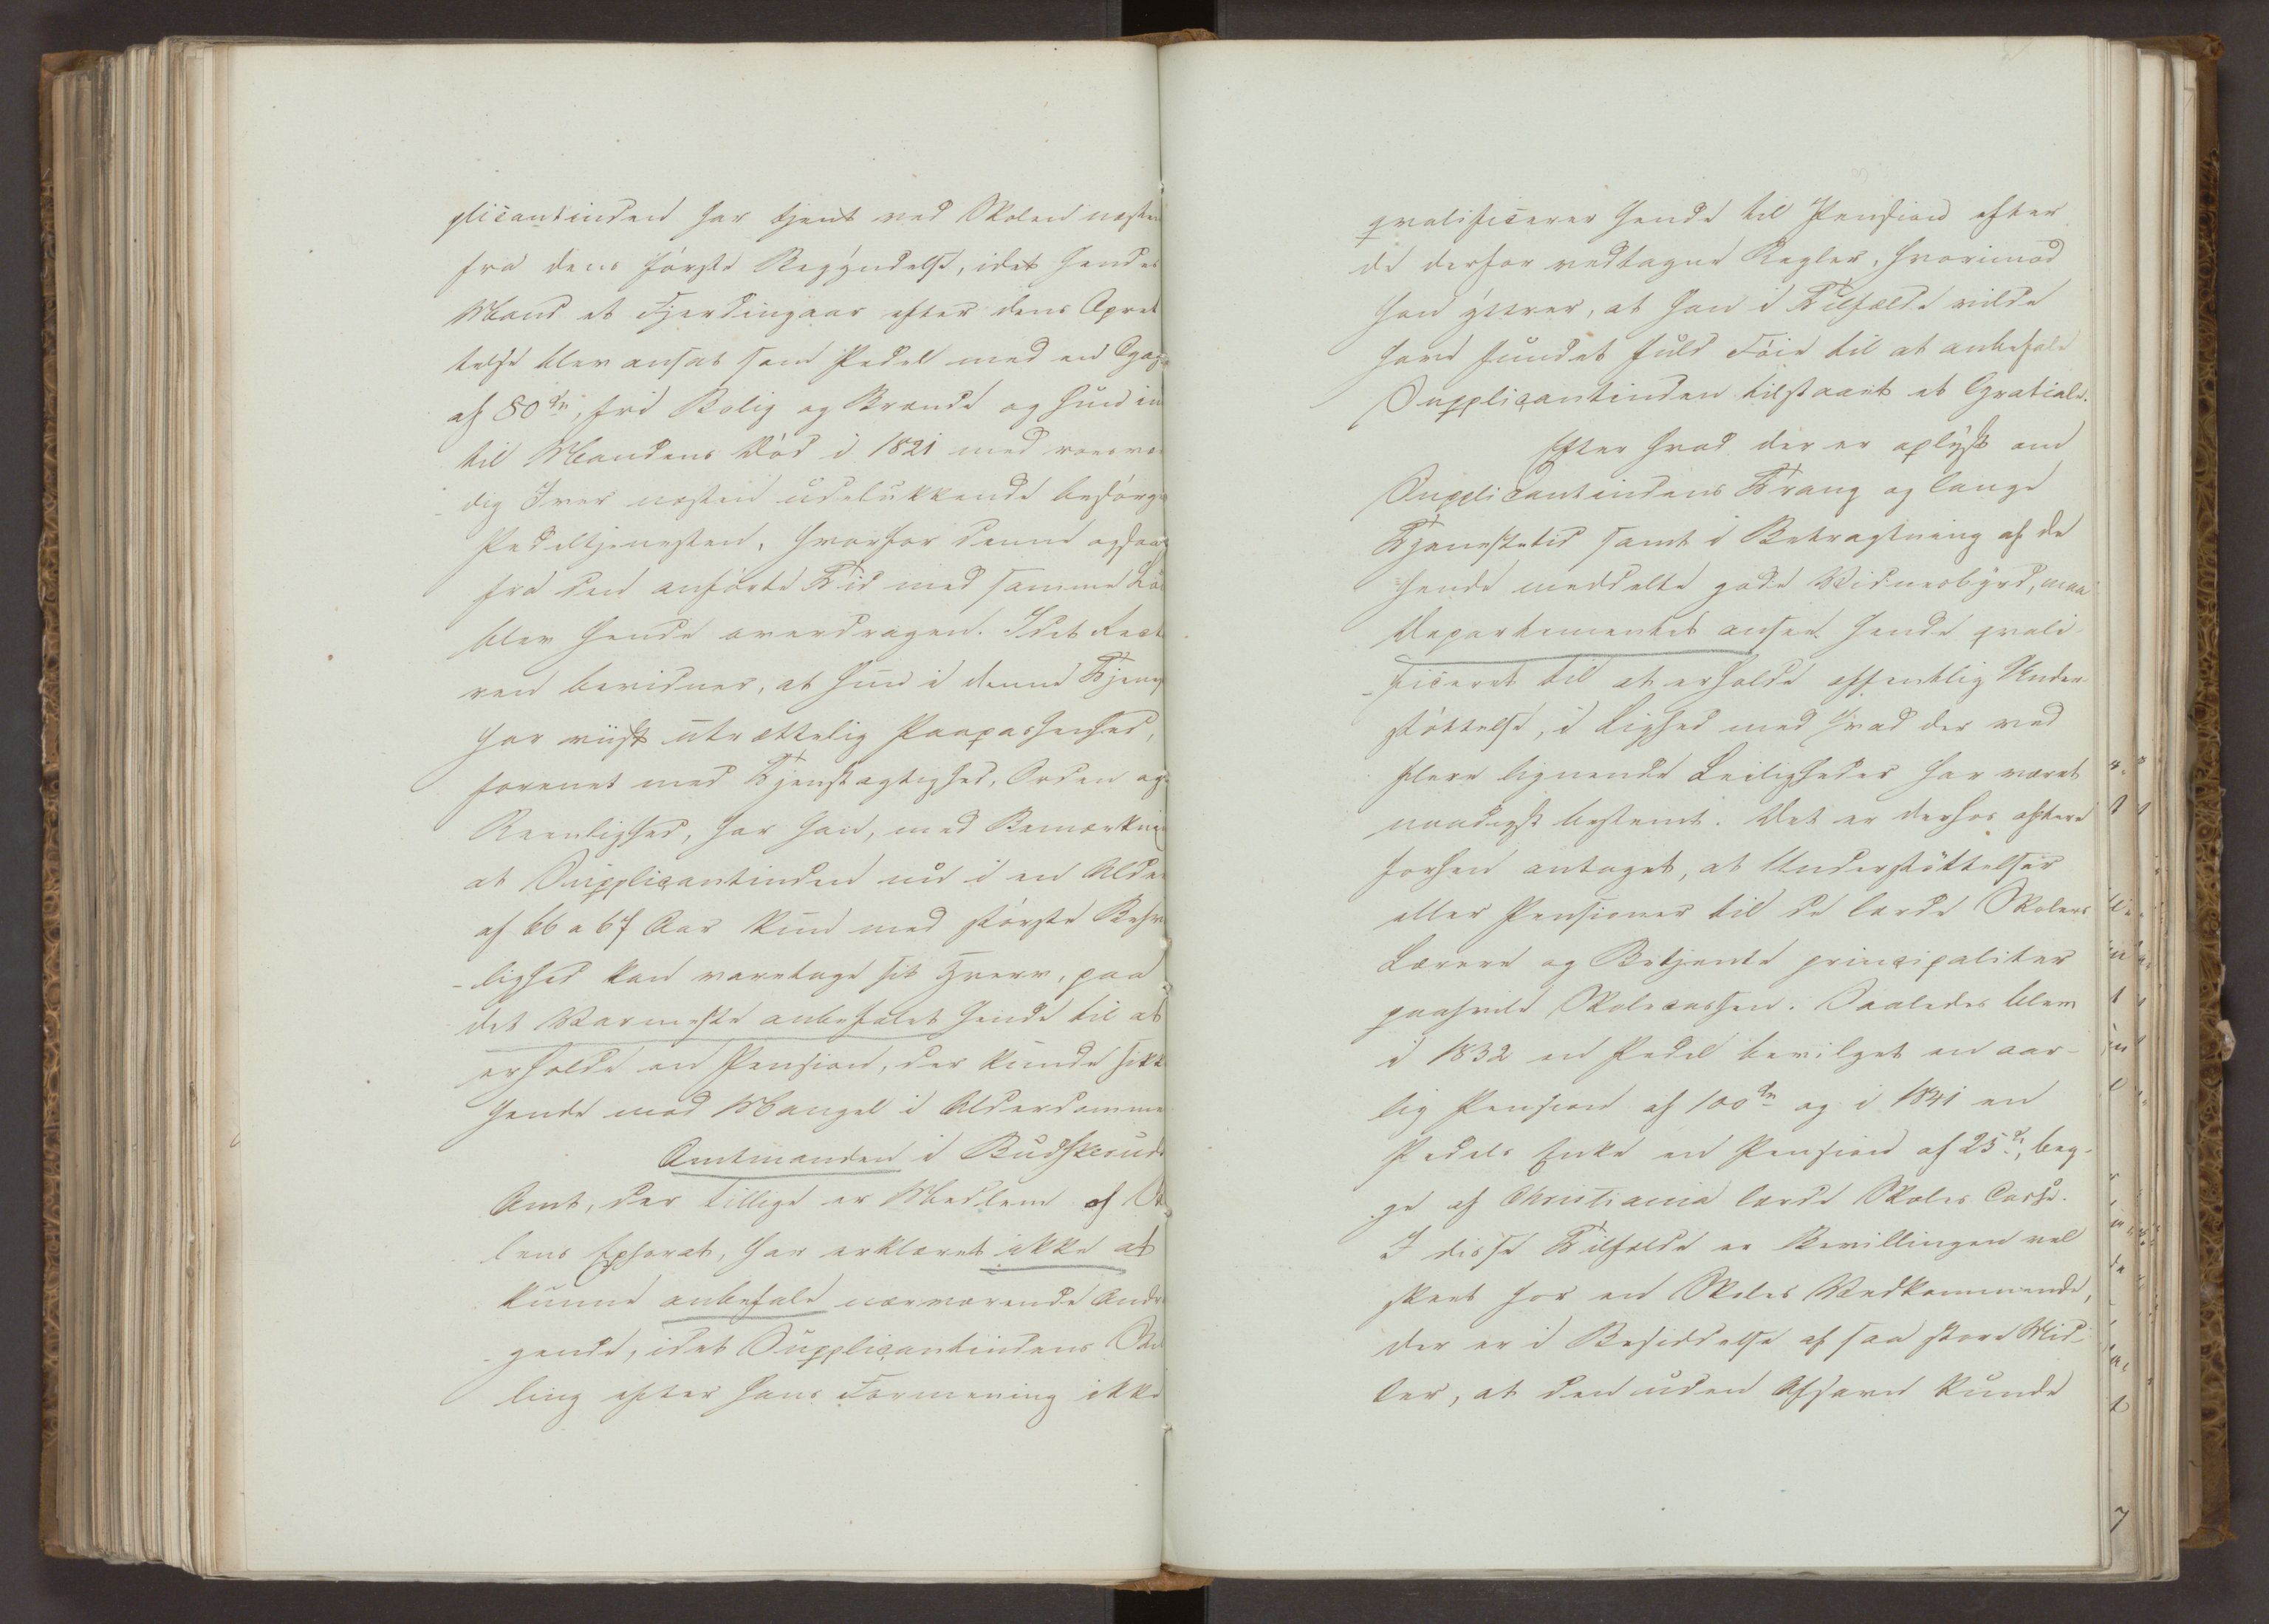 plicantinden har tjent ved Skolen næsten
fra dens første Begyndelse, idet hendes
Mand et Fjerdingaar efter dens Opret
telse blev ansat som Pedel med en Gage
af 80 Spd, fri Bolig og Brænde og hun ind
til Mandens Død i 1821 med roesvær
dig Iver næsten udelukkende besørget
Pedeltjenesten, hvorfor denne ogsaa
fra den anførte Tid med samme Løn
blev hende overdragen. Idet Recto
ren bevidner, at hun i denne Tjenes
har viist utrættelig Paapassenhed,
forenet med Tjenstagtighed, Orden og
Reenlighed, har han, med Bemærkning
at Supplicantinden nu i en Alder
af 66 a 67 Aar kun med største Besvær
lighed kan varetage sit Hverv, paa
det Varmeste anbefalet hende til at
erholde en Pension, der kunde sikkre
hende mod Mangel i Alderdommen
Amtmanden i Budskeruds
Amt, der tillige er Medlem af Sko
lens Ephorat, har erklæret ikke at
kunne anbefale nærværende Andra
gende, idet Supplicantindens Stil
ling efter hans Formening ikke
qvalificerer hende til Pension efter
de derfor vedtagne Regler, hvorimod
han yttrer, at han i Tilfælde vilde
have fundet fuld Føie til at anbefale
Supplicantinden tilstaaet et Gratiale.
Efter hvad der er oplyst om
Supplicantindens Trang og lange
Tjenestetid samt i Betragtning af de
hende meddelte gode Vidnesbyrd, maa
Departementet ansee hende qvali-
ficeret til at erholde offentlig Under-
støttelse, i Lighed med hvad der ved
flere lignende Leiligheder har været
naadigst bestemt. Det er derhos oftere
forhen antaget, at Understøttelser
eller Pensioner til de lærde Skolers
Lærere og Betjente principaliter
paahvile Skolecassen. Saaledes blev
i 1832 en Pedel bevilget en aar-
lig Pension af 100 Spd og i 1841 en
Pedels Enke en Pension af 25 Spd, beg-
ge af Christiania lærde Skoles Casse.
I disse Tilfælde er Bevillingen vel
skeet for en Skoles Vedkommende,
der er i Besiddelse af saa store Mid-
ler, at den uden Afsavn kunde